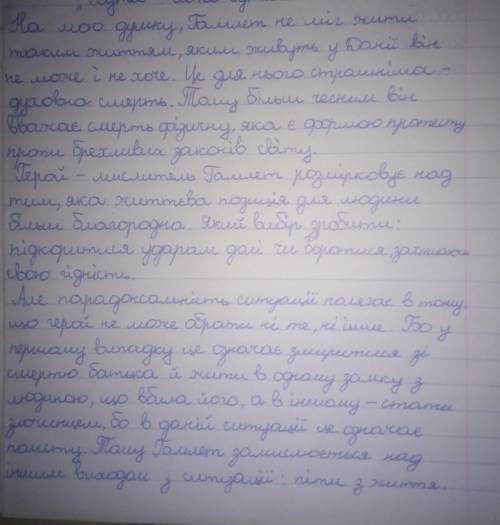 На мою думку, Гамлет не міг жити
таким життям, яким живуть у Данії він
не може і не хоче. Це для нього страшніша –
духовна смерть. Тому більш чесним він
вважає смерть фізичну, яка є формою протесту
проти брехливих законів світу.
Герой – мислитель Гамлет розмірковує над
тим, яка життєва позиція для людини
більш благородна. Який вибір зробити:
підкоритися ударам долі чи боротися, захищаючи
свою гідність.
Але парадоксальність ситуації полягає в тому,
що герой не може обрати ні те, ні інше. Бо у
першому випадку це означає змиритися зі
смертю батька й жити в одному замку з
людиною, що вбила його, а в іншому – стати
злочинцем, бо в даній ситуації це означає
помсту. Тому Гамлет замислюється над
іншим виходом з ситуації: піти з життя.